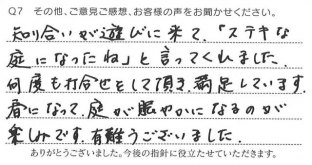 Q7 その他、ご意見ご感想、お客様の声をお聞かせください。
知り合いが遊びに来て、「ステキな
庭になったね」と言ってくれました。
何度も打合せをして頂き、満足しています。
春になって、庭が賑やかになるのが
楽しみです。有難うございました。
ありがとうございました。今後の指針に役立たせていただきます。